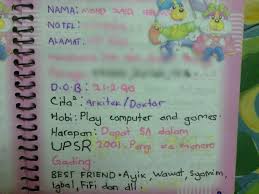 NAMA:
NOTEL:
ALAMAT:
D.O.B: 21-2-90
Cita²: Arkitek/Doktor
Hobi: Play computer and games.
Harapan: Dapat 5A dalam
UPSR 2001. Pergi ke menara
Gading.
BEST FRIEND: Ayik, Wawat, Syamim,
Iqbal, Fifi dan dll.